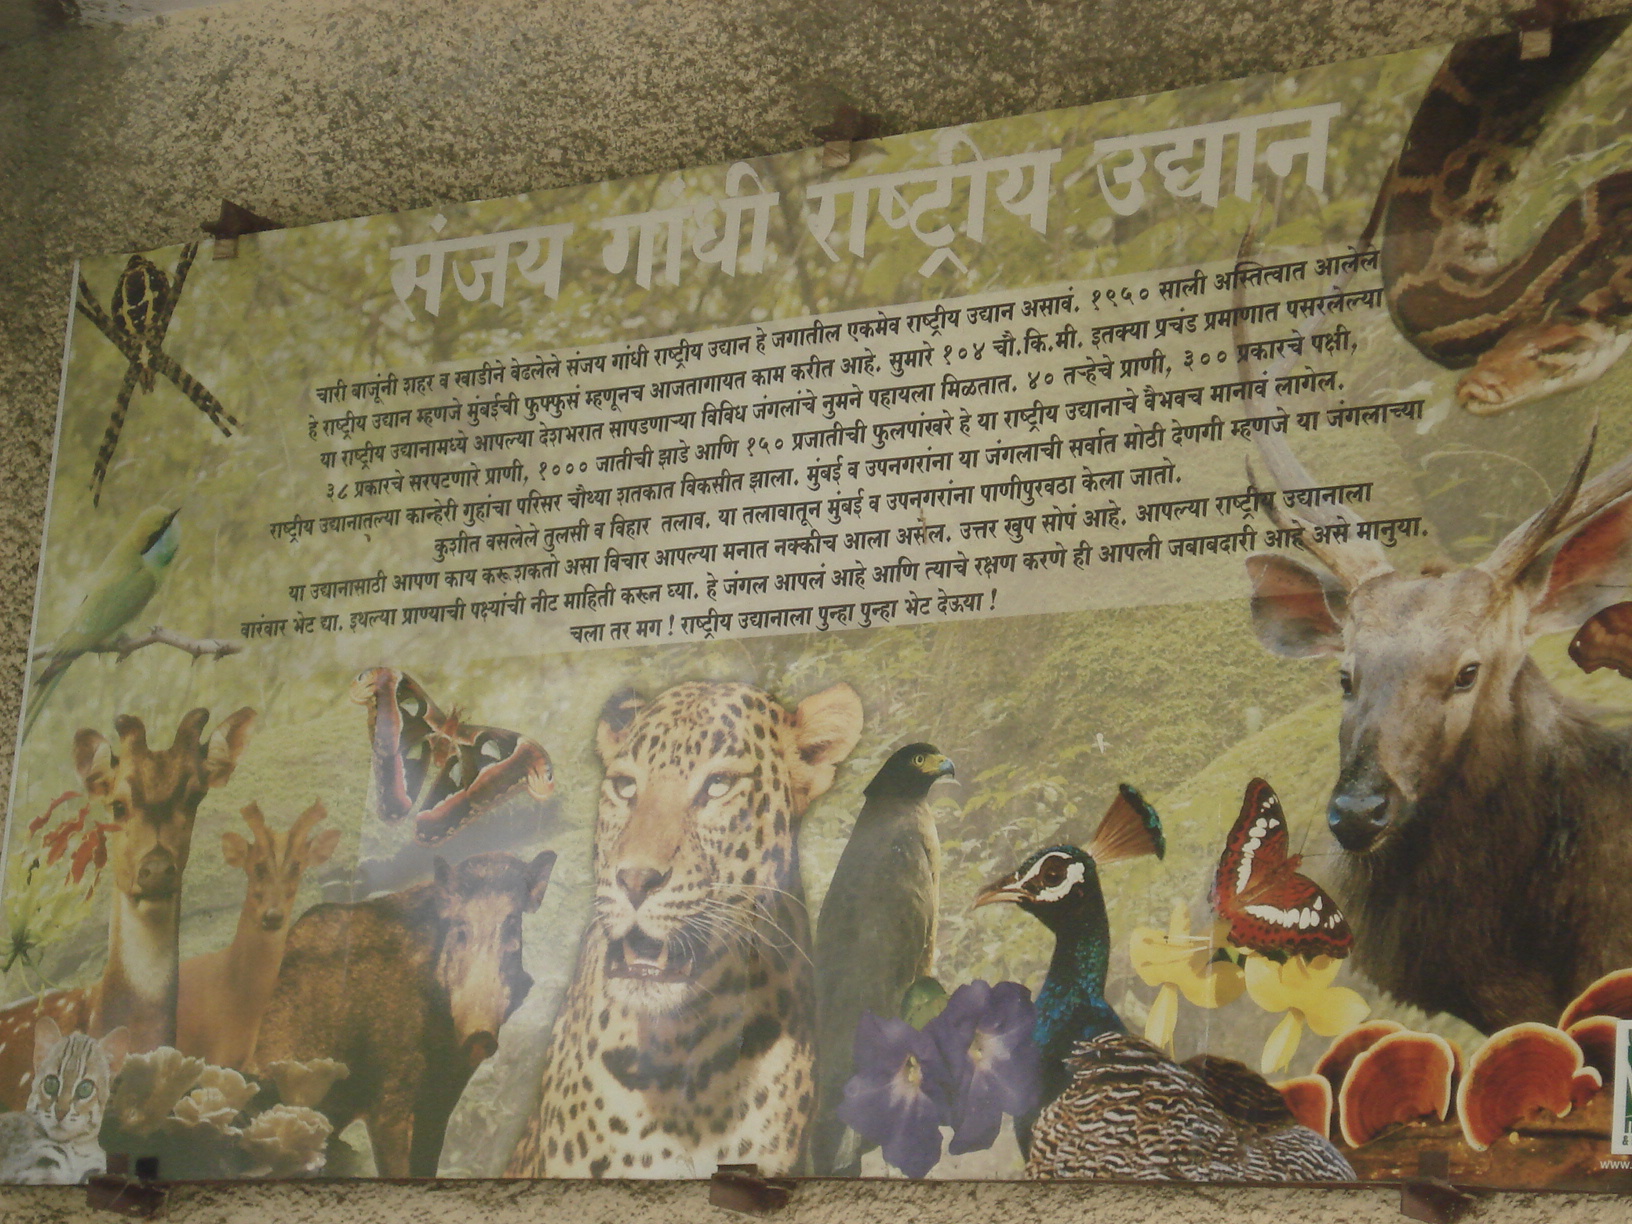 संजय गांधी राष्ट्रीय उद्यान
चारी बाजूंनी शहर व खाडीने वेढलेले संजय गांधी राष्ट्रीय उद्यान हे जगातील एकमेव राष्ट्रीय उद्यान असावं. १९५० साली अस्तित्वात आलेले
हे राष्ट्रीय उद्यान म्हणजे मुंबईची फुफ्फुसं म्हणूनच आजतागायत काम करीत आहे. सुमारे १०४ चौ.कि.मी. इतक्या प्रचंड प्रमाणात पसरलेल्या
या राष्ट्रीय उद्यानामध्ये आपल्या देशभरात सापडणाऱ्या विविध जंगलांचे नुमने पहायला मिळतात. ४० तऱ्हेचे प्राणी, ३०० प्रकारचे पक्षी,
३८ प्रकारचे सरपटणारे प्राणी, १००० जातीची झाडे आणि १५० प्रजातीची फुलपांखरे हे या राष्ट्रीय उद्यानाचे वैभवच मानावं लागेल.
राष्ट्रीय उद्यानातल्या कान्हेरी गुहांचा परिसर चौथ्या शतकात विकसीत झाला. मुंबई व उपनगरांना या जंगलाची सर्वात मोठी देणगी म्हणजे या जंगलाच्या
कुशीत वसलेले तुलसी व विहार तलाव. या तलावातून मुंबई व उपनगरांना पाणीपुरवठा केला जातो.
या उद्यानासाठी आपण काय करू शकतो असा विचार आपल्या मनात नक्कीच आला असेल. उत्तर खुप सोपं आहे. आपल्या राष्ट्रीय उद्यानाला
वारंवार भेट द्या. इथल्या प्राण्याची पक्ष्यांची नीट माहिती करून घ्या. हे जंगल आपलं आहे आणि त्याचे रक्षण करणे ही आपली जबाबदारी आहे असे मानुया.
चला तर मग ! राष्ट्रीय उद्यानाला पुन्हा पुन्हा भेट देऊया !